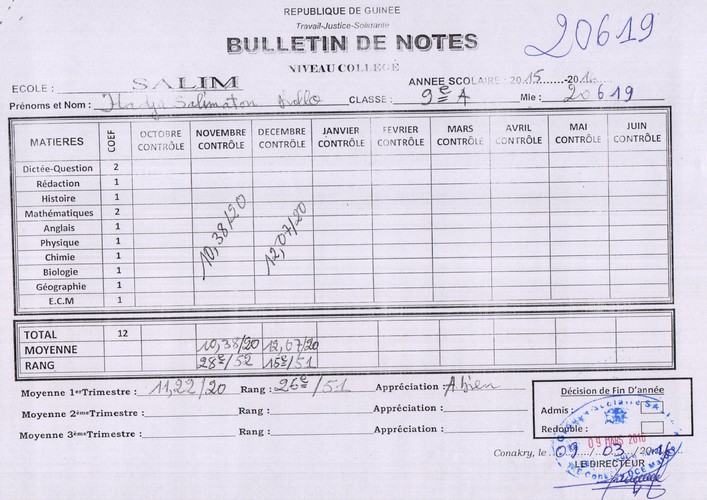 REPUBLIQUE DE GUINEE
Travail-Justice-Solidarite
BULLETIN DE NOTES
20619
NIVEAU COLLEGE
ECOLE : SALIM ANNEE SCOLAIRE : 2015.......-201
Prénoms et Nom : Hadja Salimatou Diallo CLASSE : 9è A Mle : 20619
MATIERES COEF OCTOBRE CONTRÔLE NOVEMBRE CONTRÔLE DECEMBRE CONTRÔLE JANVIER CONTRÔLE FEVRIER CONTRÔLE MARS CONTRÔLE AVRIL CONTRÔLE MAI CONTRÔLE JUIN CONTRÔLE
Dictée-Question 2
Rédaction 1
Histoire 1
Mathématiques 2
Anglais 1
Physique 1
Chimie 1
Biologie 1
Géographie 1
E.C.M 1
10,38/20 12,07/20
TOTAL 12
MOYENNE 10,38/20 12,07/20
RANG 28è/52 15è/51
Moyenne 1erTrimestre : 11,22/20 Rang : 25è/51 Appréciation : A bien
Moyenne 2èmeTrimestre : Rang : Appréciation :
Moyenne 3èmeTrimestre : Rang : Appréciation :
Décision de Fin D'année
Admis :
Redouble :
09 MARS 2016
Conakry, le 09/03/2016
LE DIRECTEUR